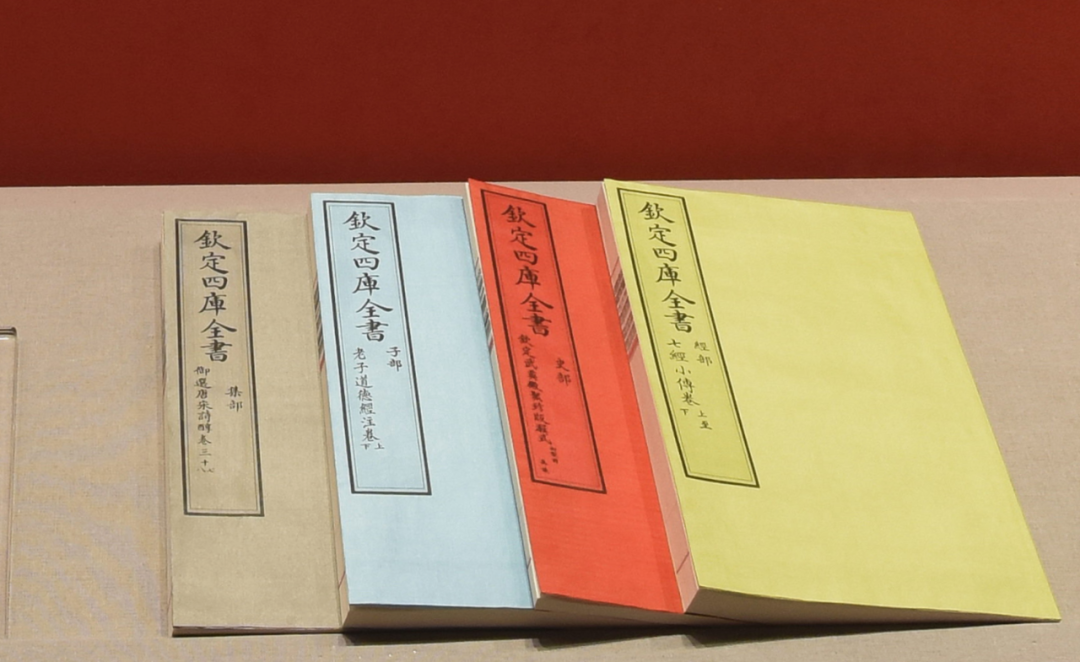 欽定四庫全書
集部
御選唐宋詩醇卷三十
欽定四庫全書
子部
老子道德經注卷上
下
欽定四庫全書
史部
欽定武英殿聚珍版程式
欽定四庫全書
經部
七經小傳卷上至
下